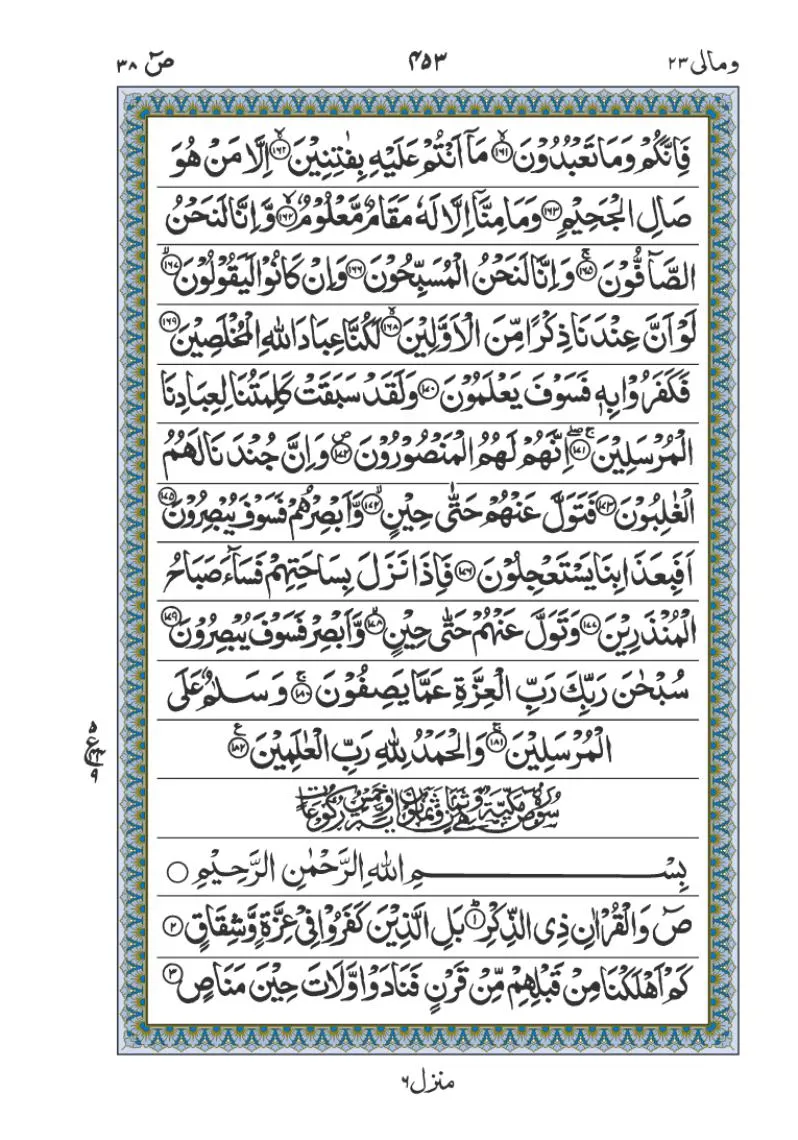 ومالی ۲۳ ۴۵۳ صٓ ۳۸
فَاِنَّكُمْ وَمَا تَعْبُدُوْنَ ۙ﴿۱۶۱﴾ مَآ اَنْتُمْ عَلَيْهِ بِفٰتِنِيْنَ ۙ﴿۱۶۲﴾ اِلَّا مَنْ هُوَ
صَالِ الْجَحِيْمِ ﴿۱۶۳﴾ وَمَا مِنَّآ اِلَّا لَهٗ مَقَامٌ مَّعْلُوْمٌ ۙ﴿۱۶۴﴾ وَّاِنَّا لَنَحْنُ
الصَّآفُّوْنَ ۚ﴿۱۶۵﴾ وَاِنَّا لَنَحْنُ الْمُسَبِّحُوْنَ ﴿۱۶۶﴾ وَاِنْ كَانُوْا لَيَقُوْلُوْنَ ۙ﴿۱۶۷﴾
لَوْ اَنَّ عِنْدَنَا ذِكْرًا مِّنَ الْاَوَّلِيْنَ ۙ﴿۱۶۸﴾ لَكُنَّا عِبَادَ اللّٰهِ الْمُخْلَصِيْنَ ﴿۱۶۹﴾
فَكَفَرُوْا بِهٖ فَسَوْفَ يَعْلَمُوْنَ ﴿۱۷۰﴾ وَلَقَدْ سَبَقَتْ كَلِمَتُنَا لِعِبَادِنَا
الْمُرْسَلِيْنَ ۚۖ﴿۱۷۱﴾ اِنَّهُمْ لَهُمُ الْمَنْصُوْرُوْنَ ۪﴿۱۷۲﴾ وَاِنَّ جُنْدَنَا لَهُمُ
الْغٰلِبُوْنَ ﴿۱۷۳﴾ فَتَوَلَّ عَنْهُمْ حَتّٰى حِيْنٍ ۙ﴿۱۷۴﴾ وَّاَبْصِرْهُمْ فَسَوْفَ يُبْصِرُوْنَ ﴿۱۷۵﴾
اَفَبِعَذَابِنَا يَسْتَعْجِلُوْنَ ﴿۱۷۶﴾ فَاِذَا نَزَلَ بِسَاحَتِهِمْ فَسَآءَ صَبَاحُ
الْمُنْذَرِيْنَ ﴿۱۷۷﴾ وَتَوَلَّ عَنْهُمْ حَتّٰى حِيْنٍ ۙ﴿۱۷۸﴾ وَّاَبْصِرْ فَسَوْفَ يُبْصِرُوْنَ ﴿۱۷۹﴾
سُبْحٰنَ رَبِّكَ رَبِّ الْعِزَّةِ عَمَّا يَصِفُوْنَ ۚ﴿۱۸۰﴾ وَسَلٰمٌ عَلَى
الْمُرْسَلِيْنَ ۚ﴿۱۸۱﴾ وَالْحَمْدُ لِلّٰهِ رَبِّ الْعٰلَمِيْنَ ﴿۱۸۲﴾ ع
سُوْرَةُ صٓ مَكِّيَّةٌ وَّهِيَ ثَمَانٌ وَّثَمَانُوْنَ اٰيَةً وَّخَمْسُ رُكُوْعَاتٍ
بِسْمِ اللّٰهِ الرَّحْمٰنِ الرَّحِيْمِ ○
صٓ وَالْقُرْاٰنِ ذِى الذِّكْرِ ؕ﴿۱﴾ بَلِ الَّذِيْنَ كَفَرُوْا فِىْ عِزَّةٍ وَّشِقَاقٍ ﴿۲﴾
كَمْ اَهْلَكْنَا مِنْ قَبْلِهِمْ مِّنْ قَرْنٍ فَنَادَوْا وَّلَاتَ حِيْنَ مَنَاصٍ ﴿۳﴾
منزل ۶